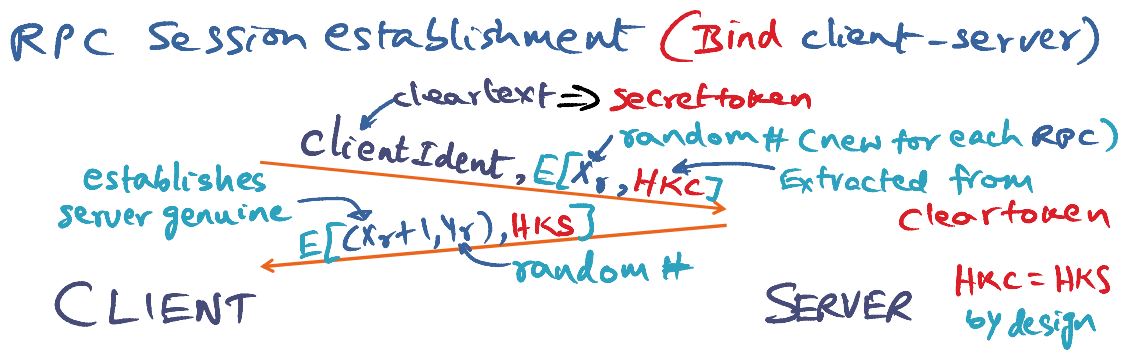 RPC Session establishment (Bind client-server)
cleartext ⇒ secrettoken
random # (new for each RPC)
ClientIdent, E[Xr, HKC]
Extracted from
cleartoken
establishes
server genuine
E[(Xr+1, Yr), HKS]
random #
CLIENT
SERVER
HKC = HKS
by design